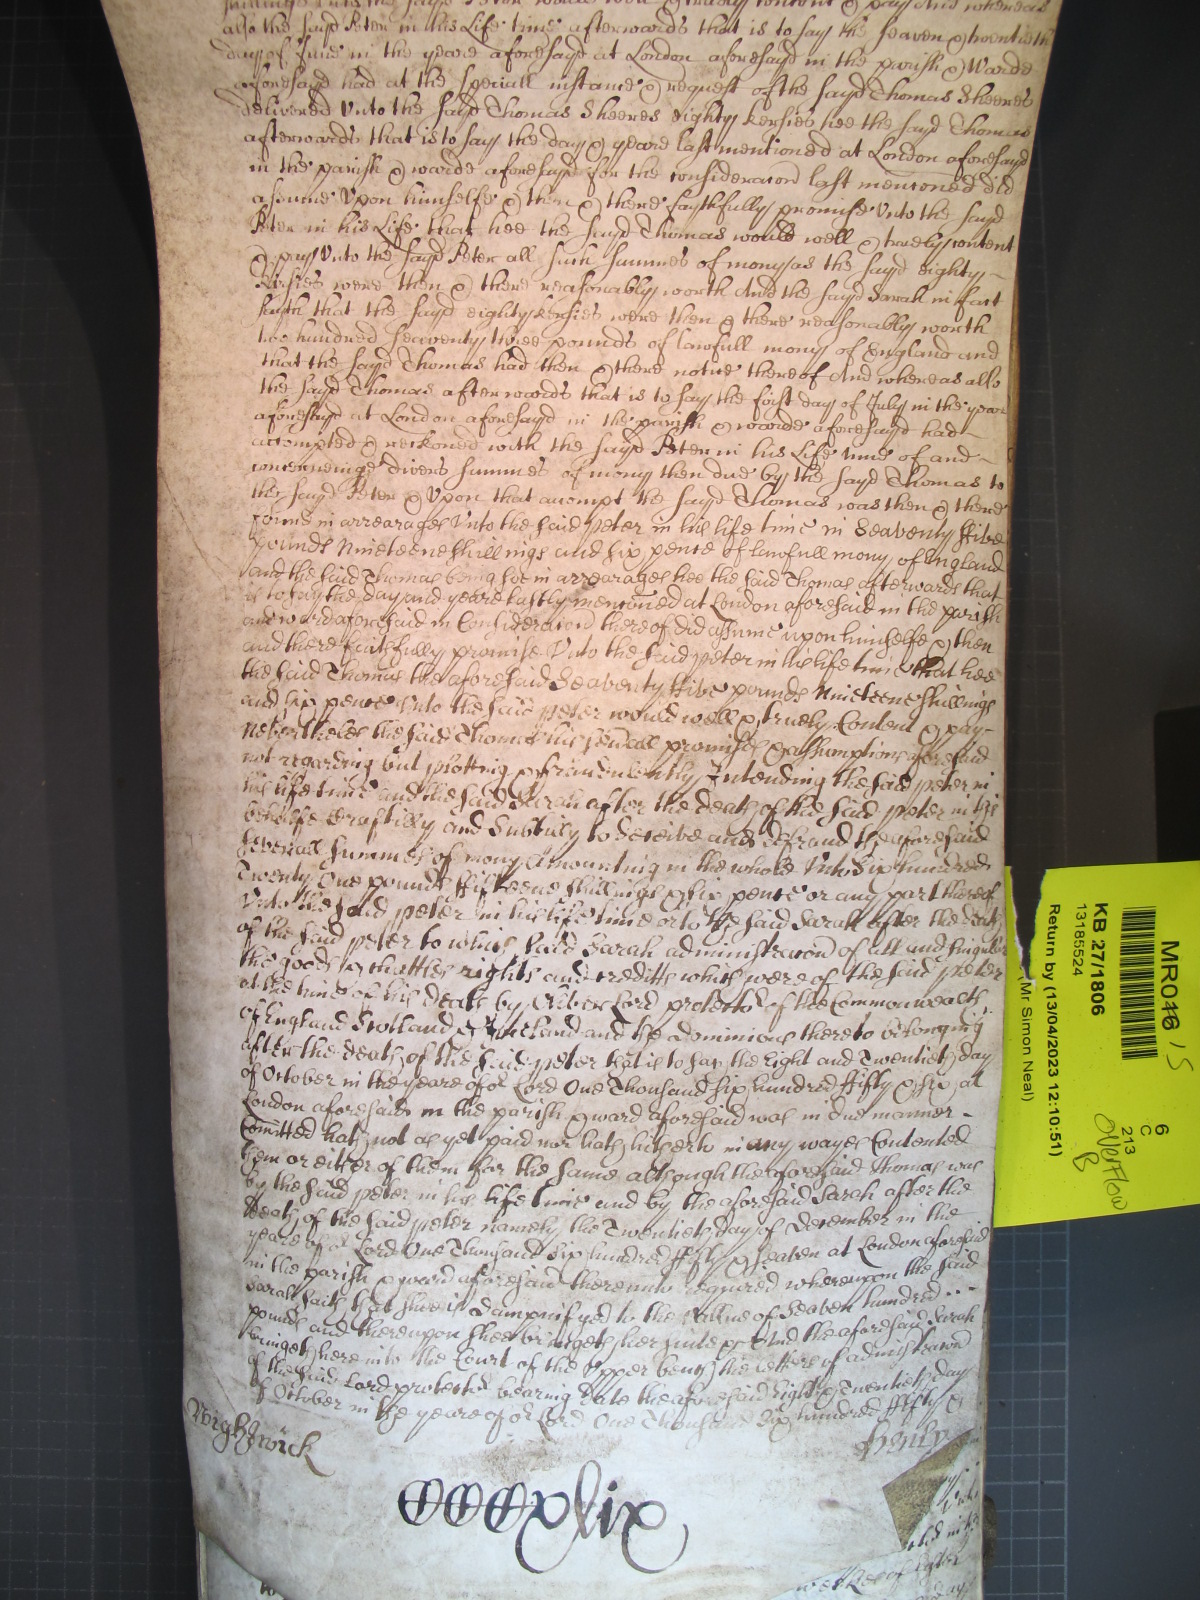 unto the sayd Peter would well & truely content & pay And whereas
also the sayd Peter in his Life time afterwards that is to say the seaven & twentieth
day of June in the yeare aforesayd at London aforesayd in the parish & Warde
aforesayd had at the speciall instance & request of the sayd Thomas Sheeres
delivered Unto the sayd Thomas Sheeres eighty kersies hee the sayd Thomas
afterwards that is to say the day & yeare last mentioned at London aforesayd
in the parish & warde aforesayd for the consideracion last mentioned did
assume Upon himselfe & then & there faythfully promise Unto the sayd
Peter in his Life that hee the sayd Thomas would well & truely content
& pay Unto the sayd Peter all such summes of mony as the sayd eighty
kersies were then & there reasonably worth And the sayd Sarah in fact
sayth that the sayd eighty kersies were then & there reasonably worth
two hundred seaventy three pounds of lawfull mony of England and
that the sayd Thomas had then & there notice thereof And whereas also
the sayd Thomas afterwards that is to say the first day of July in the yeare
aforesayd at London aforesayd in the parish & warde aforesayd had
accompted & reckoned with the sayd Peter in his Life time of and
concerneinge divers summes of mony then due by the sayd Thomas to
the sayd Peter & Upon that accompt the sayd Thomas was then & there
found in arrearages Unto the said Peter in his life time in Seaventy ffive
pounds Nineteene shillings and six pence of lawfull mony of England
and the said Thomas being soe in arrearages hee the said Thomas afterwards that
is to say the day and yeare lastly mencioned at London aforesaid in the parish
and ward aforesaid in Consideracion thereof did assume upon himselfe & then
and there faithfully promise Unto the said Peter in his life time that hee
the said Thomas the aforesaid Seaventy ffive pounds Nineteene shillings
and six pence Unto the said Peter would well & truely Content & pay
Neverthelesse the said Thomas his severall promises & assumptions aforesaid
not regarding but plotting & fraudulently Intending the said Peter in
his life time and the said Sarah after the death of the said Peter in this
behalfe Craftilly and Subtilly to deceive and defraud the aforesaid
severall summes of mony Amounting in the whole Unto Six hundred
Twenty One pounds ffifteene shillings & six pence or any part thereof
Unto the said Peter in his life time or to the said Sarah after the death
of the said Peter to which said Sarah administracion of all and singuler
the goods & chattles rights and creditts which were of the said Peter
at the time of his death by Oliver Lord protector of the Commonwealth
of England Scotland & Ireland and the dominions thereto belonging
after the death of the said Peter that is to say the Eight and Twentieth day
of October in the yeare of or Lord One Thousand six hundred ffifty & six at
London aforesaid in the parish & ward aforesaid was in due manner
Comitted hath not as yet paid nor hath hitherto in any wayes Contented
them or either of them for the same although the aforesaid Thomas was
by the said Peter in his life time and by the aforesaid Sarah after the
death of the said Peter namely the Twentieth day of December in the
yeare of or Lord One Thousand Six hundred ffifty & seaven at London aforesaid
in the parish & ward aforesaid thereunto required whereupon the said
Sarah saith that shee is dampnifyed to the Vallue of Seaven hundred
pounds and thereupon shee bringeth her suite &c And the aforesaid Sarah
bringeth here into the Court of the Upper bench the letters of administracion
of the said Lord protector bearing date the aforesaid Eight & Twentieth day
of October in the yeare of or Lord One Thousand Six hundred ffifty &
Wightwick
CCCCxlix
MR046 / 5
KB 27/1806
13185524
Return by (13/04/2023 12:10:51)
(Mr Simon Neal)
6
C
213
OVERFLOW
B